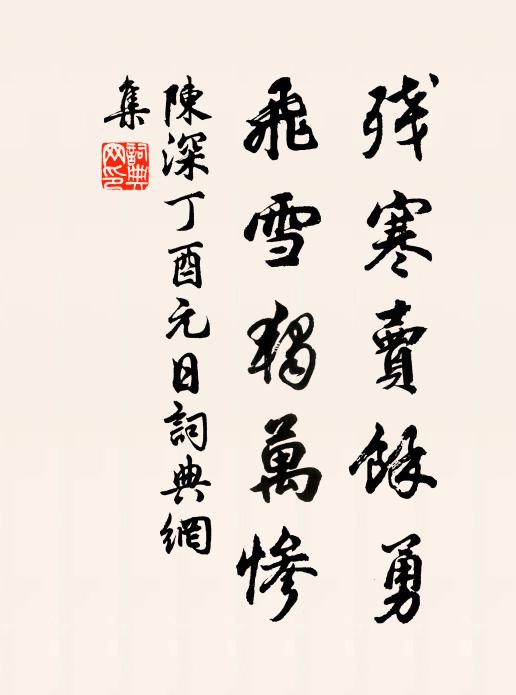 殘寒賣餘勇
飛雪獨萬慘
陳深丁酉元日詞典網
集
詞典網印